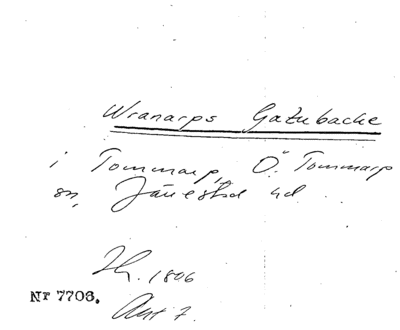 Wranarps Gatubacke
i Tommarp, Ö. Tommarp
sn, Järrestad hd
1806
Nr 7708.
Akt 7